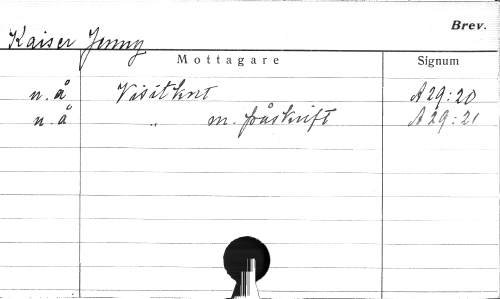 Brev.
Kaiser Jenny
Mottagare Signum
n.å Visitkort A 29:20
n.å " m. påskrift A 29:21